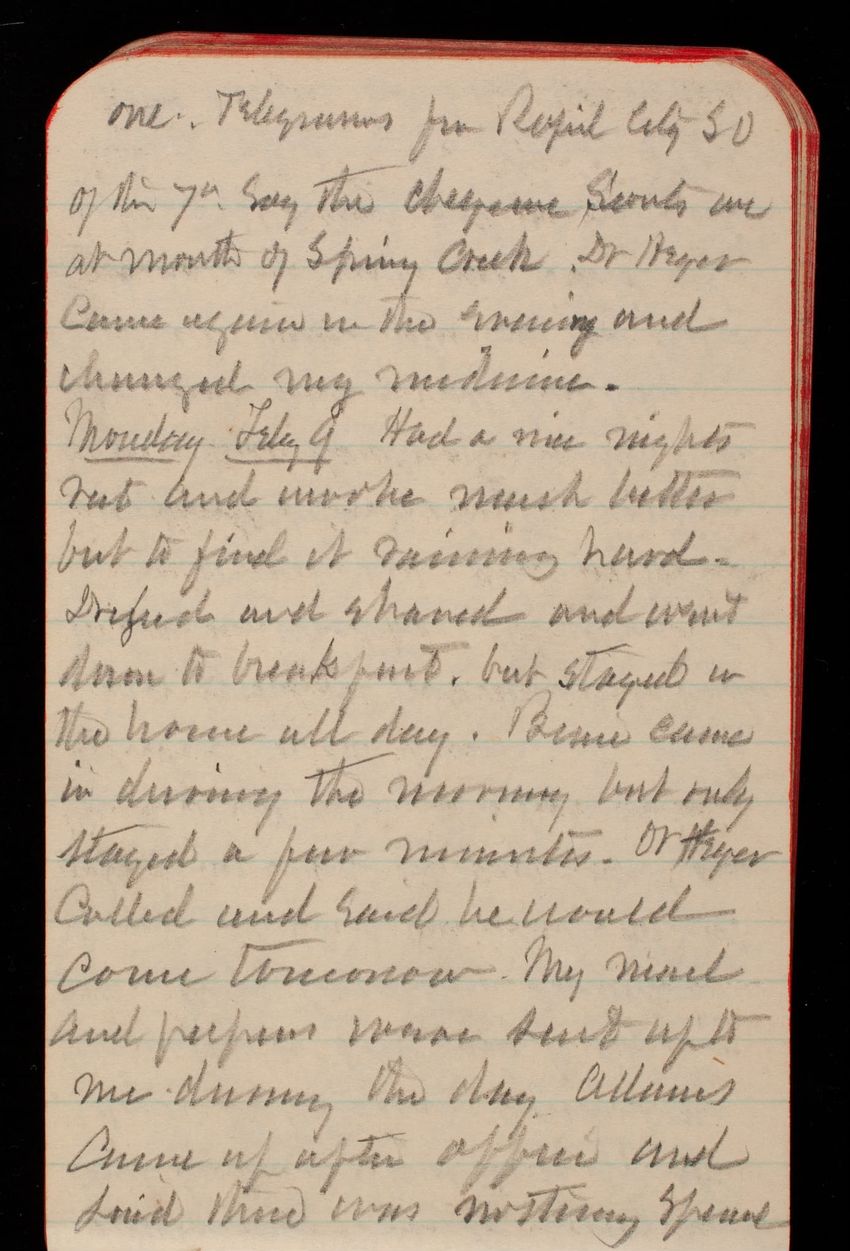 one. Telegrams fm Rapid City SD
of the 7th Say the Cheyenne Scouts are
at mouth of Spring Creek. Dr Heger
Came again in the evening and
changed my medicine.
Monday Feby 9 Had a nice nights
rest and awoke much better
but to find it raining hard.
Dressed and shaved and went
down to breakfast. but stayed in
the house all day. Bessie came
in during the morning but only
stayed a few minutes. Dr Heger
Called and said he would
come tomorrow. My mail
and papers were sent up to
me during the day Adams
Came up after office and
said there was nothing